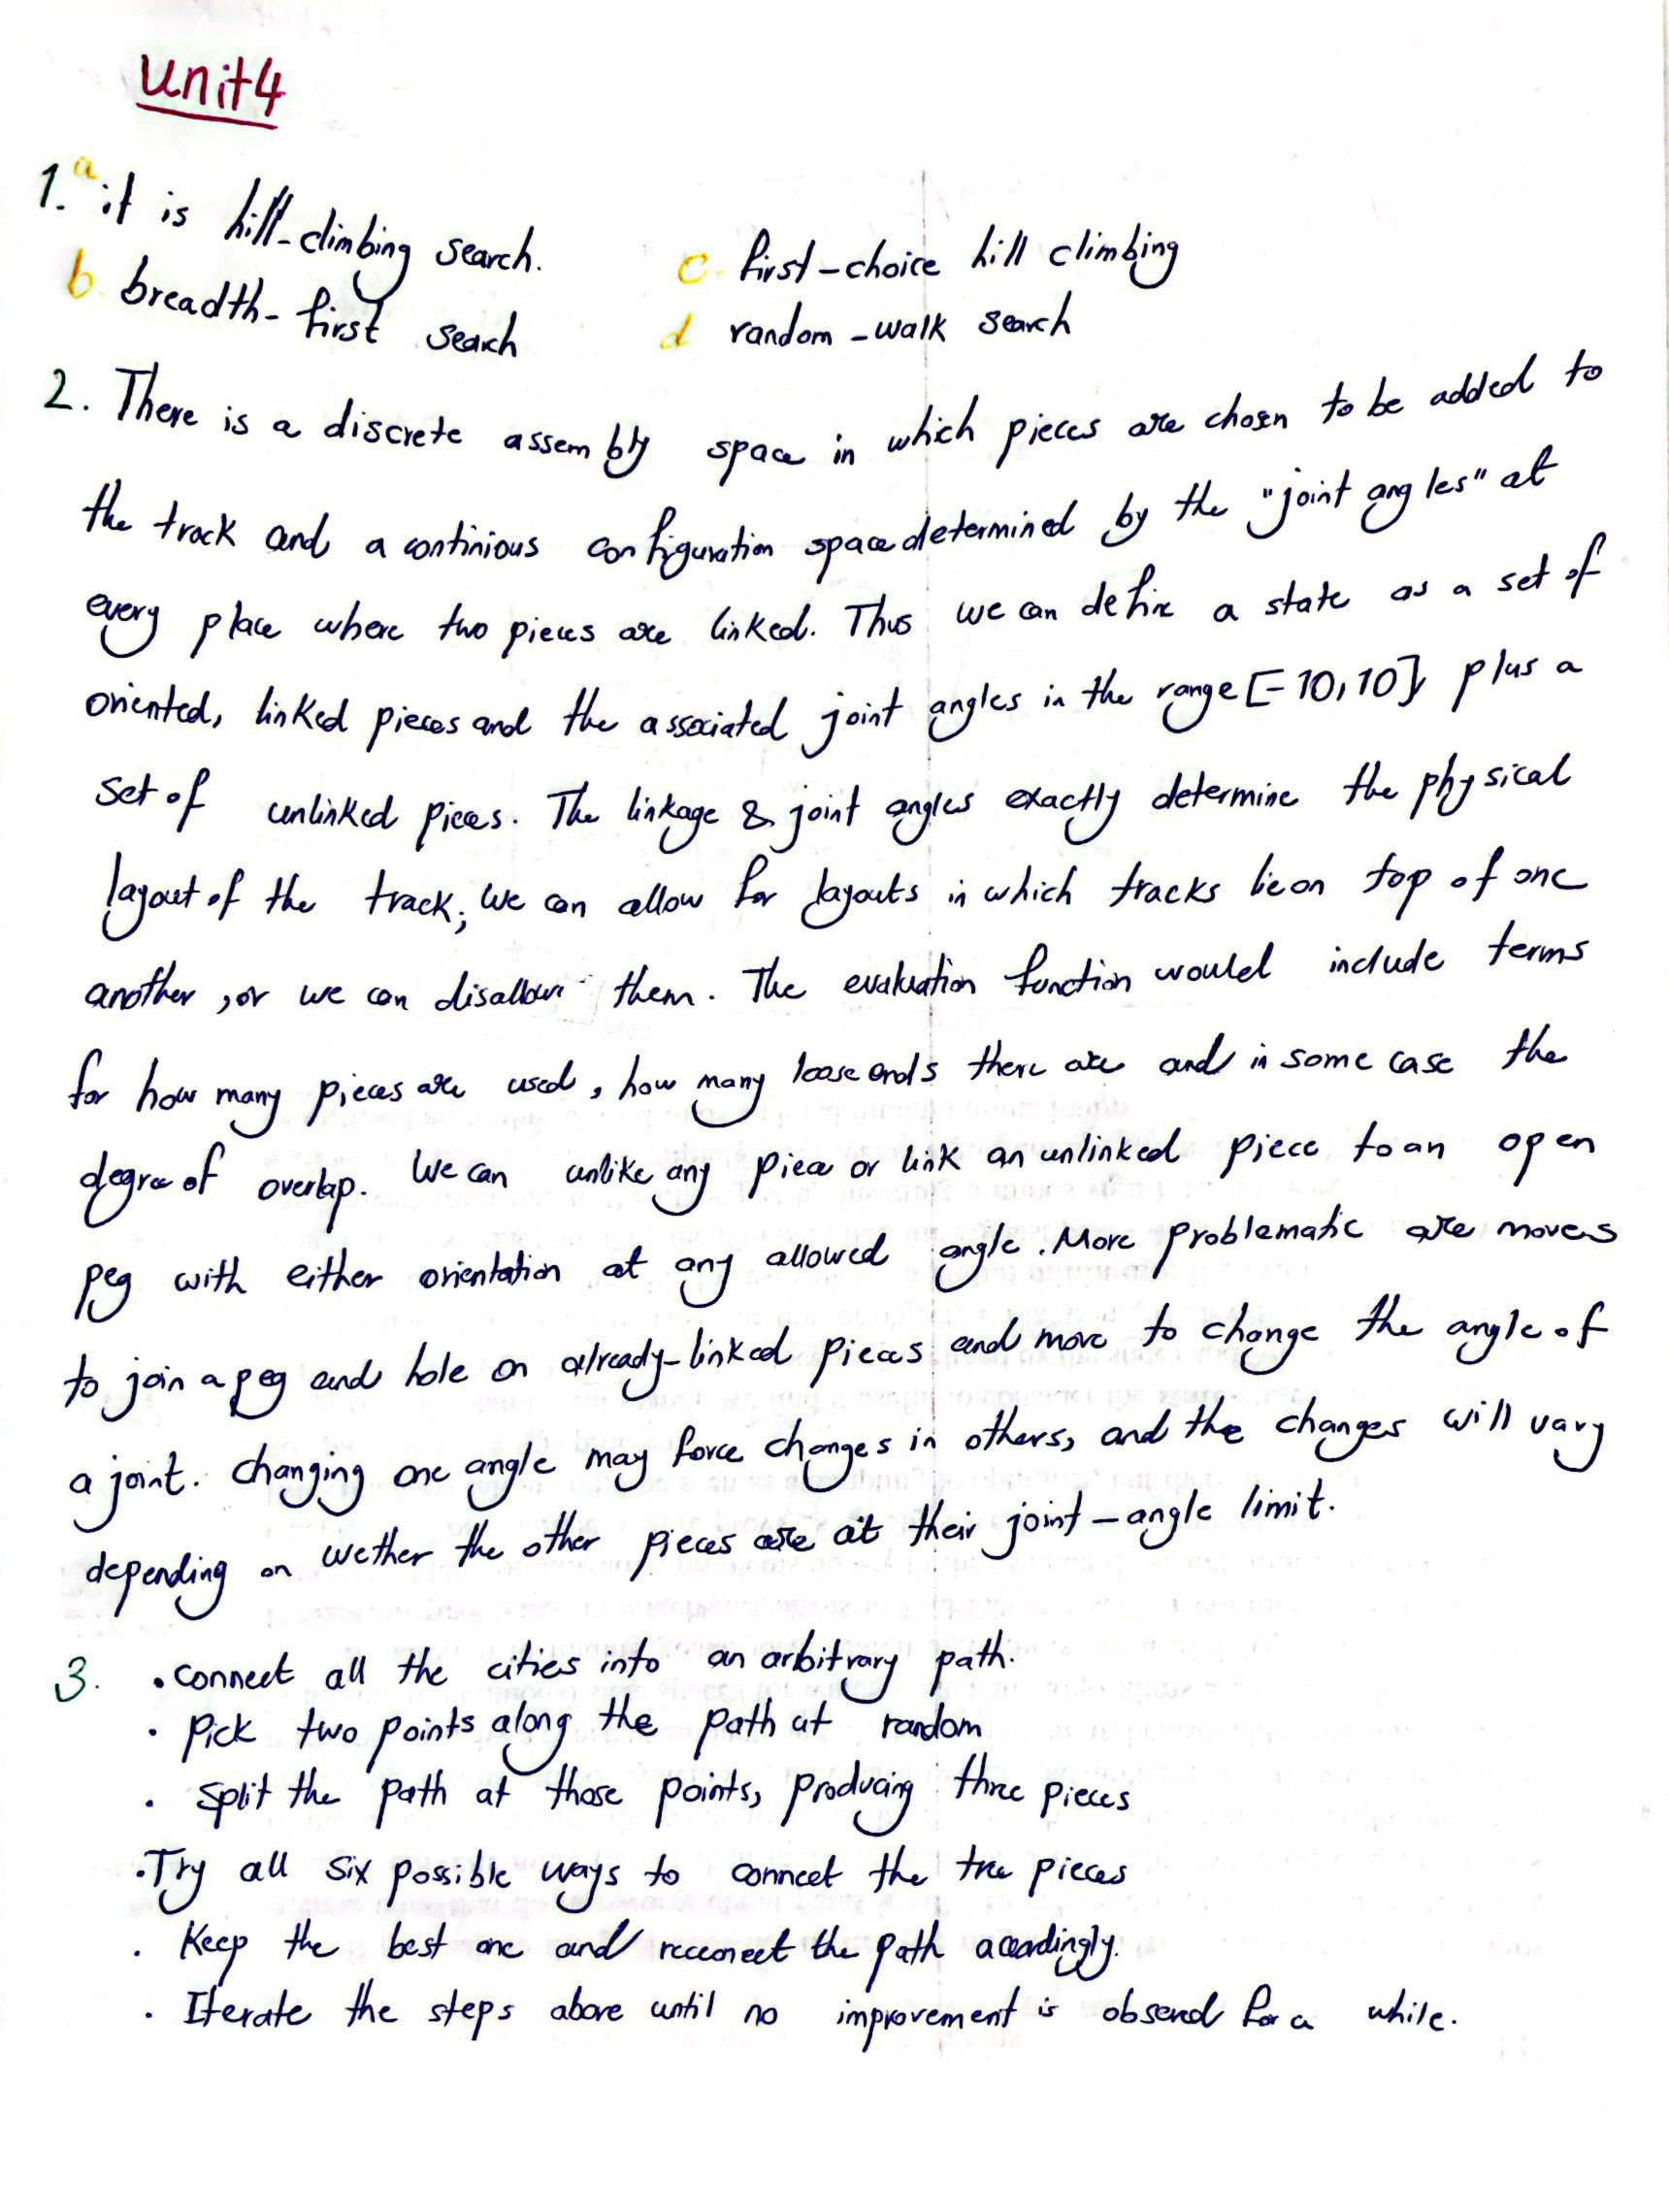 Unit4
1. a it is hill-climbing search.
b. breadth-first search
c. first-choice hill climbing
d random-walk search
2. There is a discrete assembly space in which pieces are chosen to be added to
the track and a continious configuration space determined by the "joint angles" at
every place where two pieces are linked. Thus we can define a state as a set of
oriented, linked pieces and the associated joint angles in the range [-10,10] plus a
set of unlinked pieces. The linkage & joint angles exactly determine the physical
layout of the track; we can allow for layouts in which tracks lie on top of one
another, or we can disallow them. The evaluation function would include terms
for how many pieces are used, how many loose ends there are and in some case the
degree of overlap. We can unlike any piece or link an unlinked piece to an open
peg with either orientation at any allowed angle. More problematic are moves
to join a peg and hole on already-linked pieces and move to change the angle of
a joint. changing one angle may force changes in others, and the changes will vary
depending on wether the other pieces are at their joint-angle limit.
3. • connect all the cities into an arbitrary path.
• Pick two points along the path at random
• Split the path at those points, producing three pieces
• Try all six possible ways to connect the tree pieces
• Keep the best one and reconeet the path accordingly.
• Iterate the steps above until no improvement is obsered for a while.